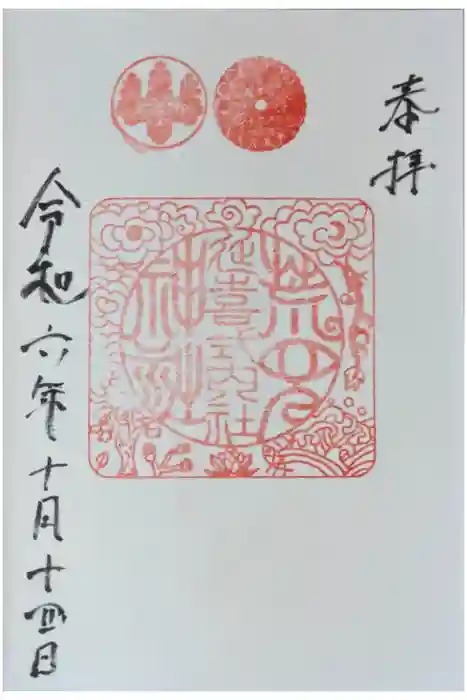 奉拝
延喜式内社
令和六年十月十四日